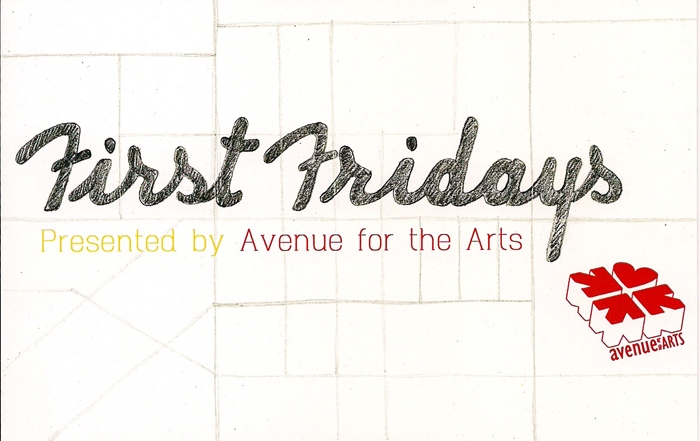 First Fridays
Presented by Avenue for the Arts
avenue for the ARTS